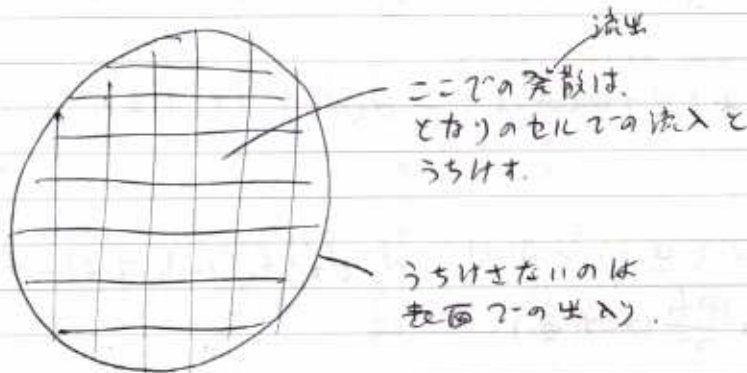 流出
ここでの発散は、
となりのセルでの流入と
うちけす.
うちけさないのは
表面での出入り.